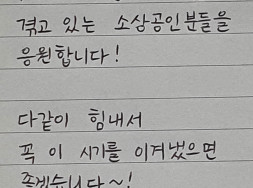 겪고 있는 소상공인분들을
응원합니다!
다같이 힘내서
꼭 이 시기를 이겨냈으면
좋겠습니다~!